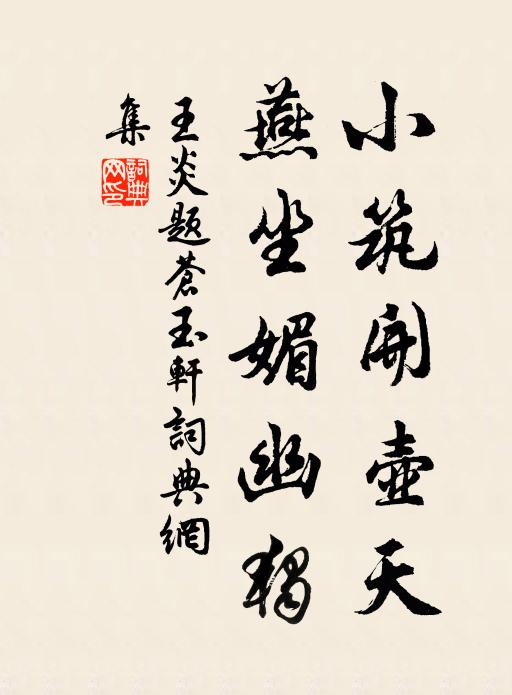 小筑開壺天
燕坐媚幽獨
王炎題蒼玉軒詞典網
集
詞典
网印